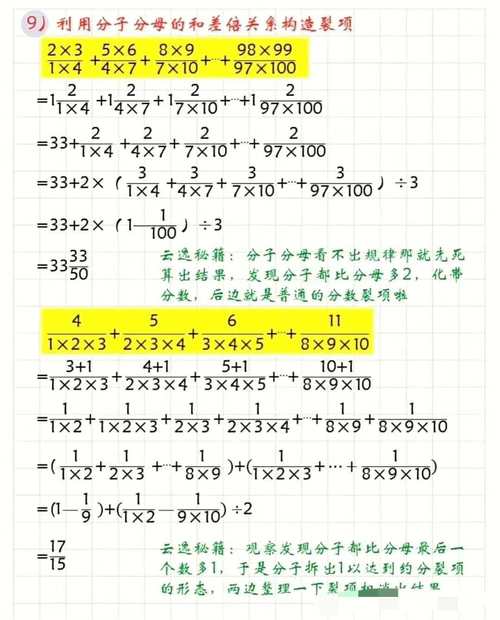 9) 利用分子分母的和差倍关系构造裂项
2×3/1×4 + 5×6/4×7 + 8×9/7×10 +···+ 98×99/97×100
=1 2/1×4 +1 2/4×7 +1 2/7×10 +···+1 2/97×100
=33+ 2/1×4 + 2/4×7 + 2/7×10 +···+ 2/97×100
=33+2×( 3/1×4 + 3/4×7 + 3/7×10 +···+ 3/97×100 )÷3
=33+2×(1- 1/100 )÷3
=33 33/50
云逸秘籍：分子分母看不出规律那就先死
算出结果，发现分子都比分母多2，化带
分数，后边就是普通的分数裂项啦
4/1×2×3 + 5/2×3×4 + 6/3×4×5 +···+ 11/8×9×10
= 3+1/1×2×3 + 4+1/2×3×4 + 5+1/3×4×5 +···+ 10+1/8×9×10
= 1/1×2 + 1/1×2×3 + 1/2×3 + 1/2×3×4 +···+ 1/8×9 + 1/8×9×10
=( 1/1×2 + 1/2×3 +···+ 1/8×9 )+( 1/1×2×3 +···+ 1/8×9×10 )
=(1- 1/9 )+( 1/1×2 - 1/9×10 )÷2
= 17/15
云逸秘籍：观察发现分子都比分母最后一
个数多1，于是分子拆出1以达到约分裂项
的形态，两边整理一下裂项相消出结果